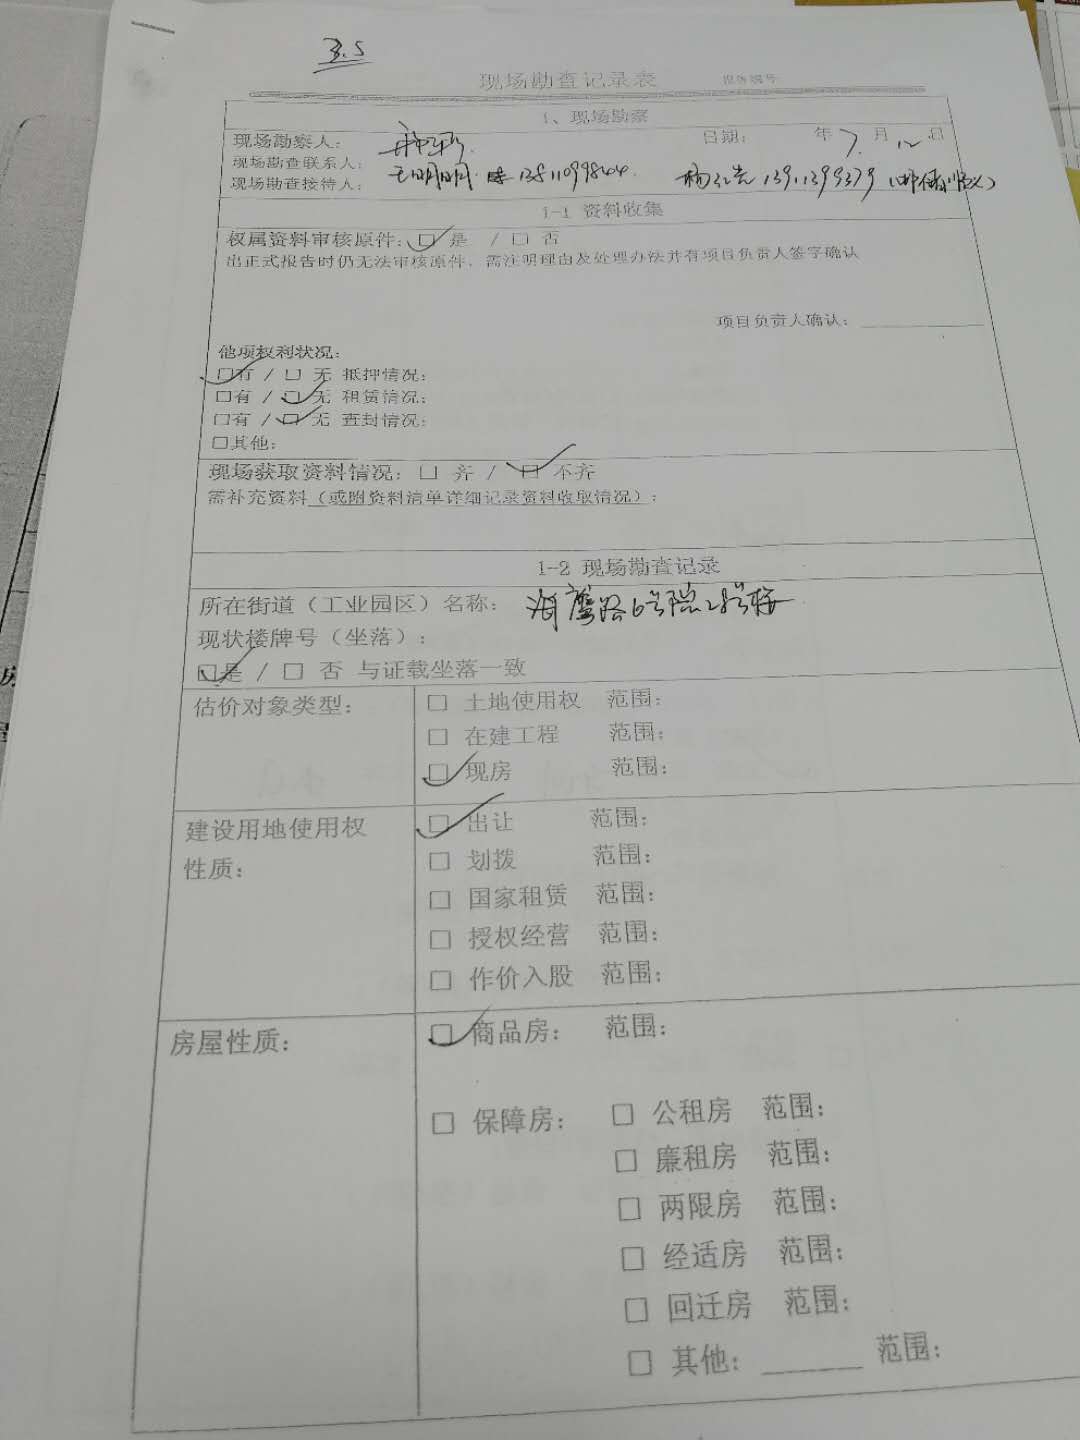 3.5
现场勘查记录表 报告编号
1、现场勘察
现场勘察人： 日期： 年 7 月 12 日
现场勘查联系人：
现场勘查接待人： 王明明 13911399379
1-1 资料收集
权属资料审核原件：☑ 是 / □ 否
出正式报告时仍无法审核原件，需注明理由及处理办法并有项目负责人签字确认
项目负责人确认：
他项权利状况：
☑有 / □ 无 抵押情况：
□有 / ☑ 无 租赁情况：
□有 / ☑ 无 查封情况：
□其他：
现场获取资料情况：□ 齐 / ☑ 不齐
需补充资料（或附资料清单详细记录资料收取情况）：
1-2 现场勘查记录
所在街道（工业园区）名称： 海鹰路6号院2号楼
现状楼牌号（坐落）：
☑是 / □ 否 与证载坐落一致
估价对象类型： □ 土地使用权 范围：
□ 在建工程 范围：
☑ 现房 范围：
建设用地使用权 ☑ 出让 范围：
性质： □ 划拨 范围：
□ 国家租赁 范围：
□ 授权经营 范围：
□ 作价入股 范围：
房屋性质： ☑ 商品房： 范围：
□ 保障房： □ 公租房 范围：
□ 廉租房 范围：
□ 两限房 范围：
□ 经适房 范围：
□ 回迁房 范围：
□ 其他：______ 范围：